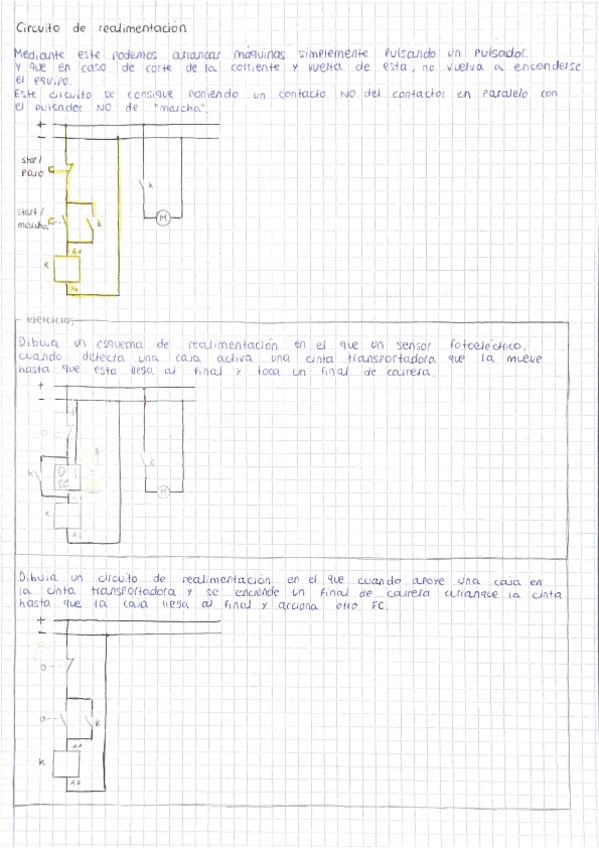 Circuito de realimentación
Mediante este podemos arrancar máquinas simplemente pulsando un pulsador.
Y que en caso de corte de la corriente y vuelta de esta, no vuelva a encenderse
el equipo.
Este circuito se consigue poniendo un contacto NO del contactor en paralelo con
el pulsador NO de "marcha".
+
-
stop/
paro
K
M
start/
marcha
K
A1
K
A2
ejercicios
Dibuja un esquema de realimentación en el que un sensor fotoeléctrico,
cuando detecta una caja activa una cinta transportadora que la mueve
hasta que esta llega al final y toca un final de carrera.
+
-
K
K
M
A1
K
A2
Dibuja un circuito de realimentación en el que cuando apoye una caja en
la cinta transportadora y se enciende un final de carrera arranque la cinta
hasta que la caja llega al final y acciona otro FC.
+
-
K
A1
K
A2